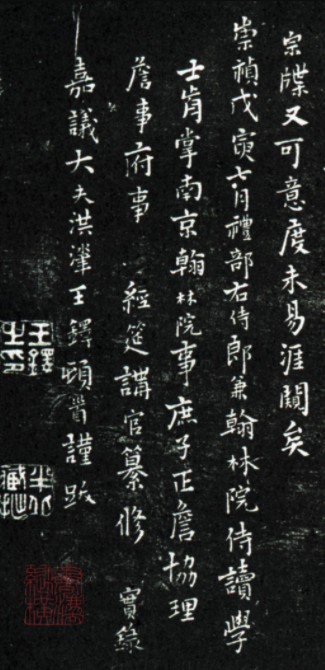 宗牒又可意度未易涯闚矣
崇禎戊寅七月禮部右侍郎兼翰林院侍讀學
士肯掌南京翰林院事庶子正詹協理
詹事府事 經筵講官纂修 實錄
嘉議大夫洪漄王鐸頓首謹跋
王鐸之印